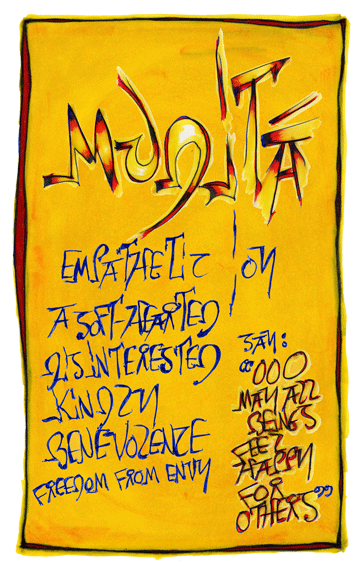 MUDITĀ
EMPATHETIC JOY
A SOFT-HEARTED
DISINTERESTED
KINDLY
BENEVOLENCE
FREEDOM FROM ENVY
SAY:
“OOO
MAY ALL
BEINGS
FEEL
HAPPY
FOR
OTHERS”